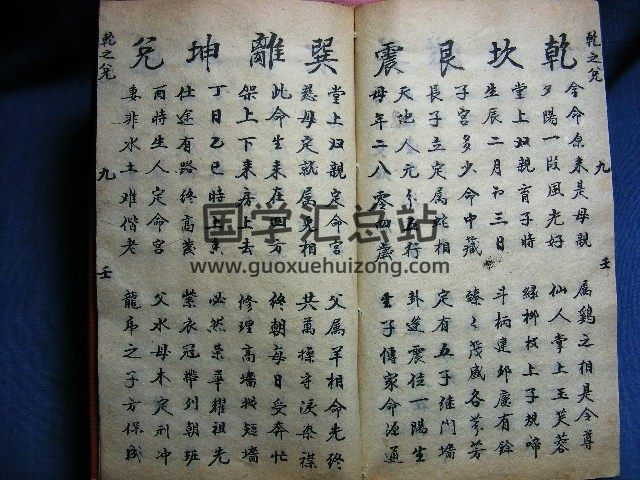 乾坎艮震
乾之兌 九 壬
令命原来是母親 属鷄之相是令尊
夕陽一段風光好 仙人掌上玉芙蓉
堂上双親育子時 緑柳枝上子規啼
生辰二月初三日 斗柄建卯慶有餘
子宫多少命中藏 臻々茂盛各芬芳
長子立定属蛇相 定有五子維門墙
天地人元分五行 卦逢震位一陽生
母年二八零四歲 生子傳家命源通
巽離坤兌
堂上双親定命言 父属羊相命先终
慈母定就属兔相 共萬操守淚染襟
此命生来在四方 终朝每日受奔忙
架上下来房上去 修理高墙與短墙
丁日乙巳時上 必然荣華耀祖先
仕途有路终高發 紫衣冠帶列朝班
酉時生人定命宫 父水母木定刑冲
妻非水土难偕老 龍虎之子方保成
乾之兌 九 壬
国学汇总站
www.guoxuehuizong.com